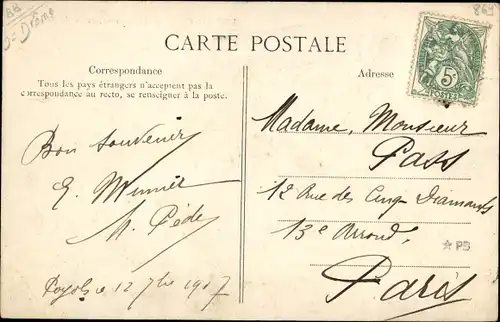 88
D-Drome
869
CARTE POSTALE
Correspondance
Tous les pays étrangers n'acceptent pas la
correspondance au recto, se renseigner à la poste.
Adresse
5c
POSTES
Bon souvenir
E. Munier
A. Pède
12 7bre 1907
Madame, Monsieur
Pass
12 Rue des Cinq Diamants
13e Arrond.
Paris
★ PB